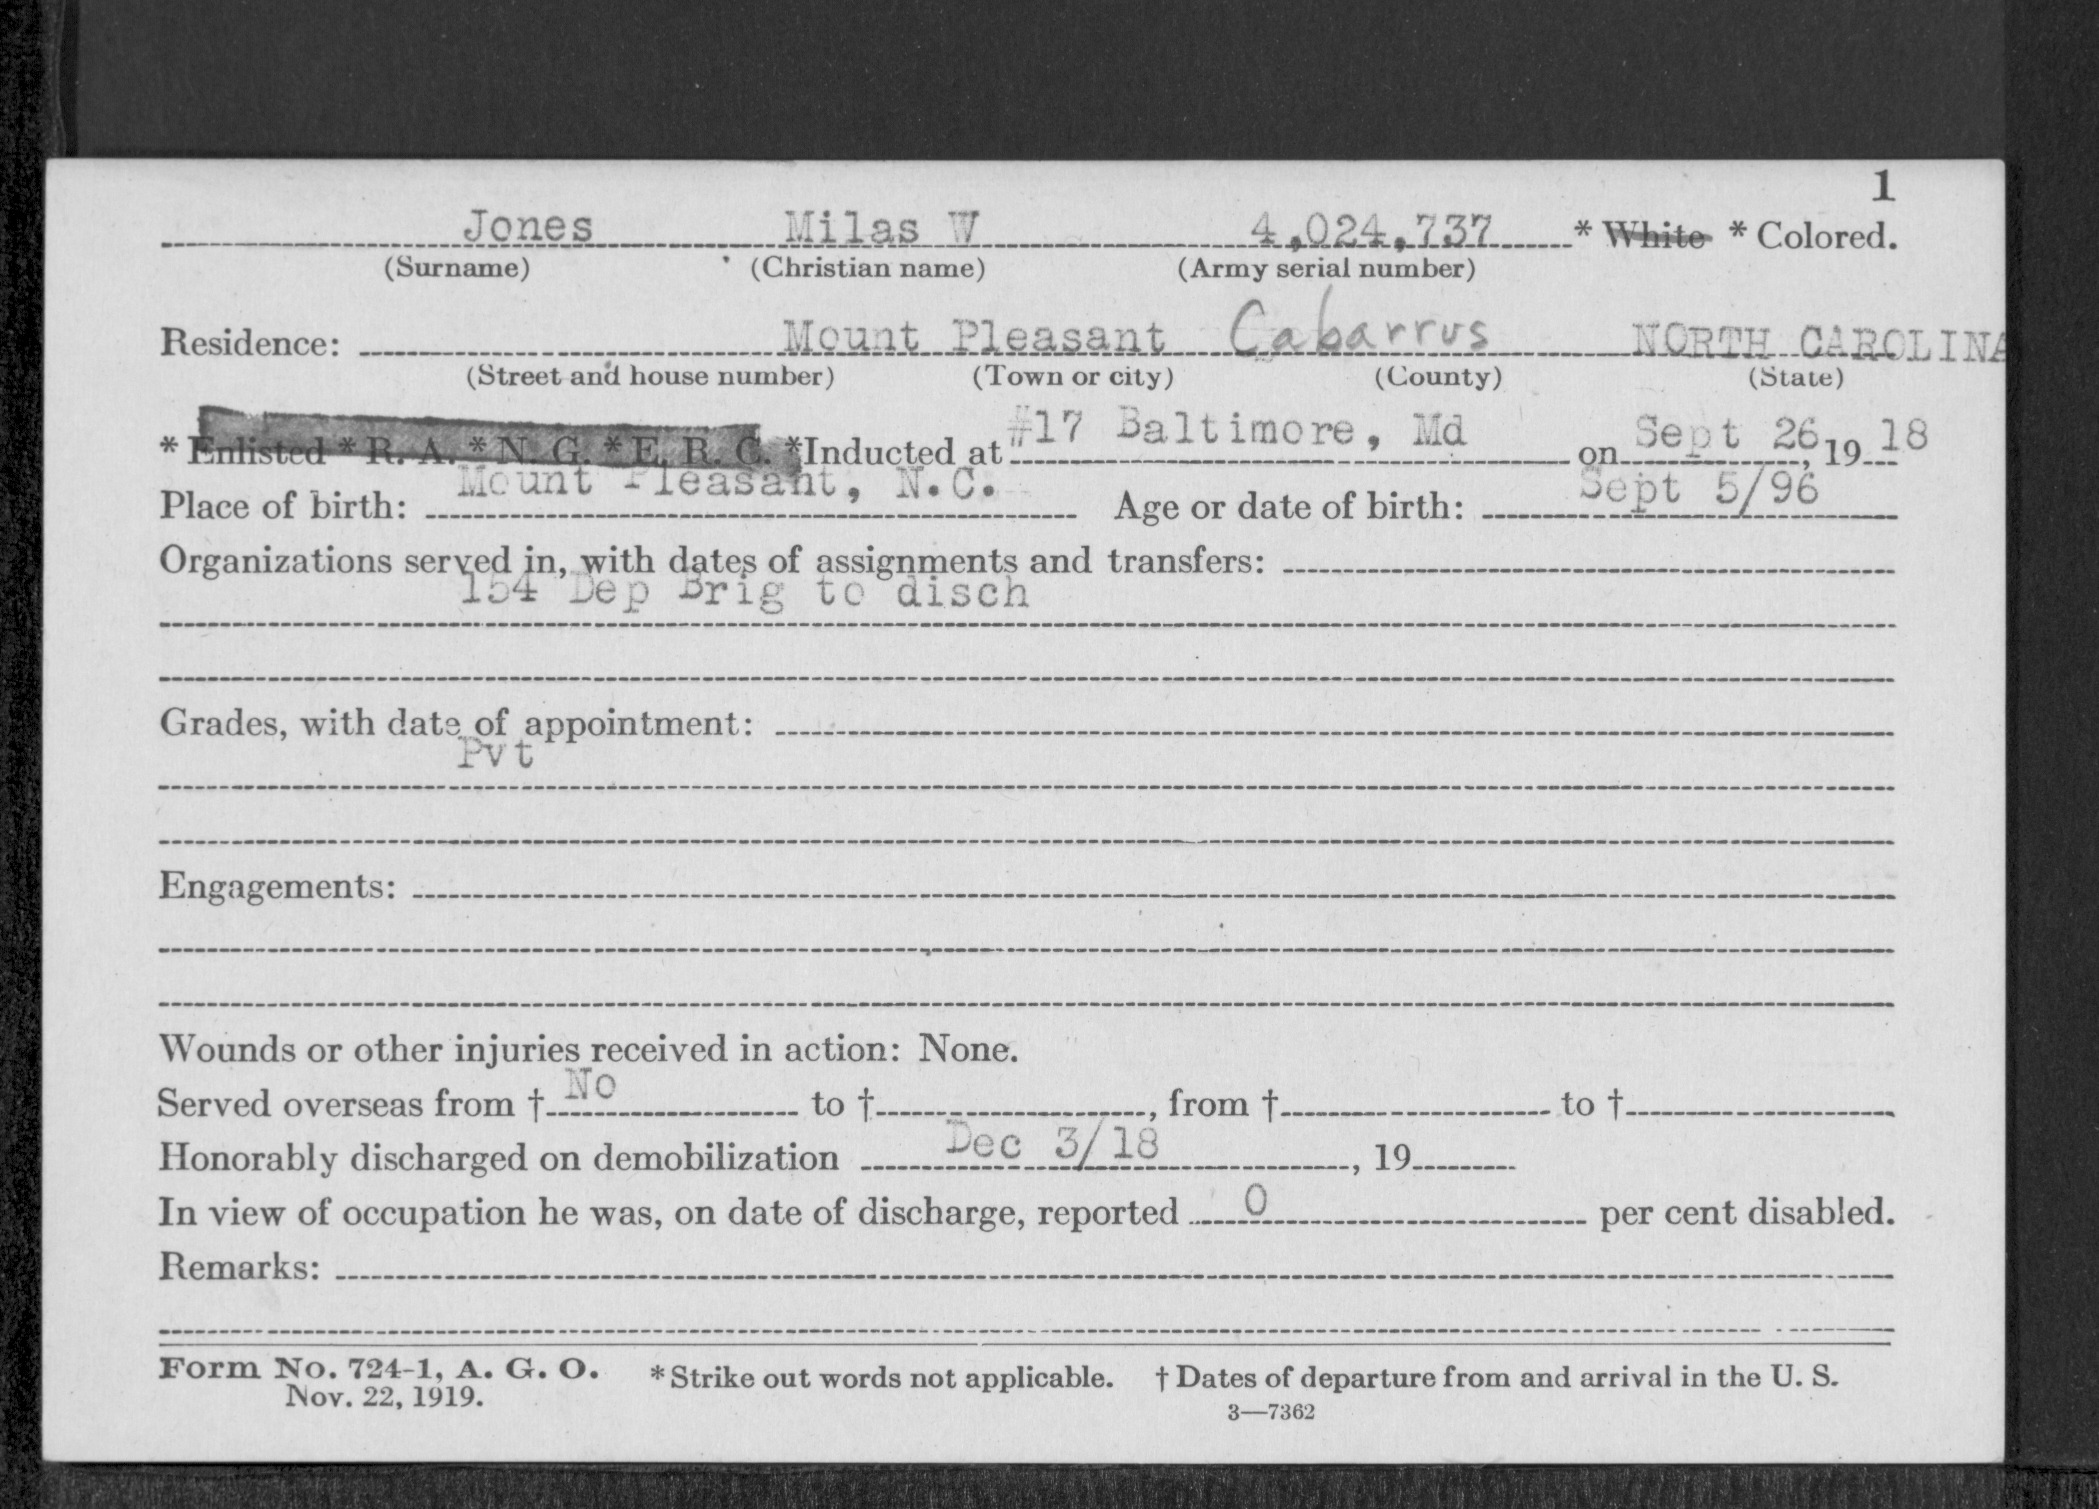 1
Jones Milas W 4,024,737 * White * Colored.
(Surname) (Christian name) (Army serial number)
Residence: Mount Pleasant Cabarrus NORTH CAROLINA
(Street and house number) (Town or city) (County) (State)
* Enlisted * R. A. * N. G. * E. R. C. *Inducted at #17 Baltimore, Md on Sept 26, 1918
Place of birth: Mount Pleasant, N.C. Age or date of birth: Sept 5/96
Organizations served in, with dates of assignments and transfers:
154 Dep Brig to disch
Grades, with date of appointment:
Pvt
Engagements:
Wounds or other injuries received in action: None.
Served overseas from † No to †, from † to †
Honorably discharged on demobilization Dec 3/18, 19
In view of occupation he was, on date of discharge, reported 0 per cent disabled.
Remarks:
Form No. 724-1, A. G. O. * Strike out words not applicable. † Dates of departure from and arrival in the U. S.
Nov. 22, 1919. 3—7362